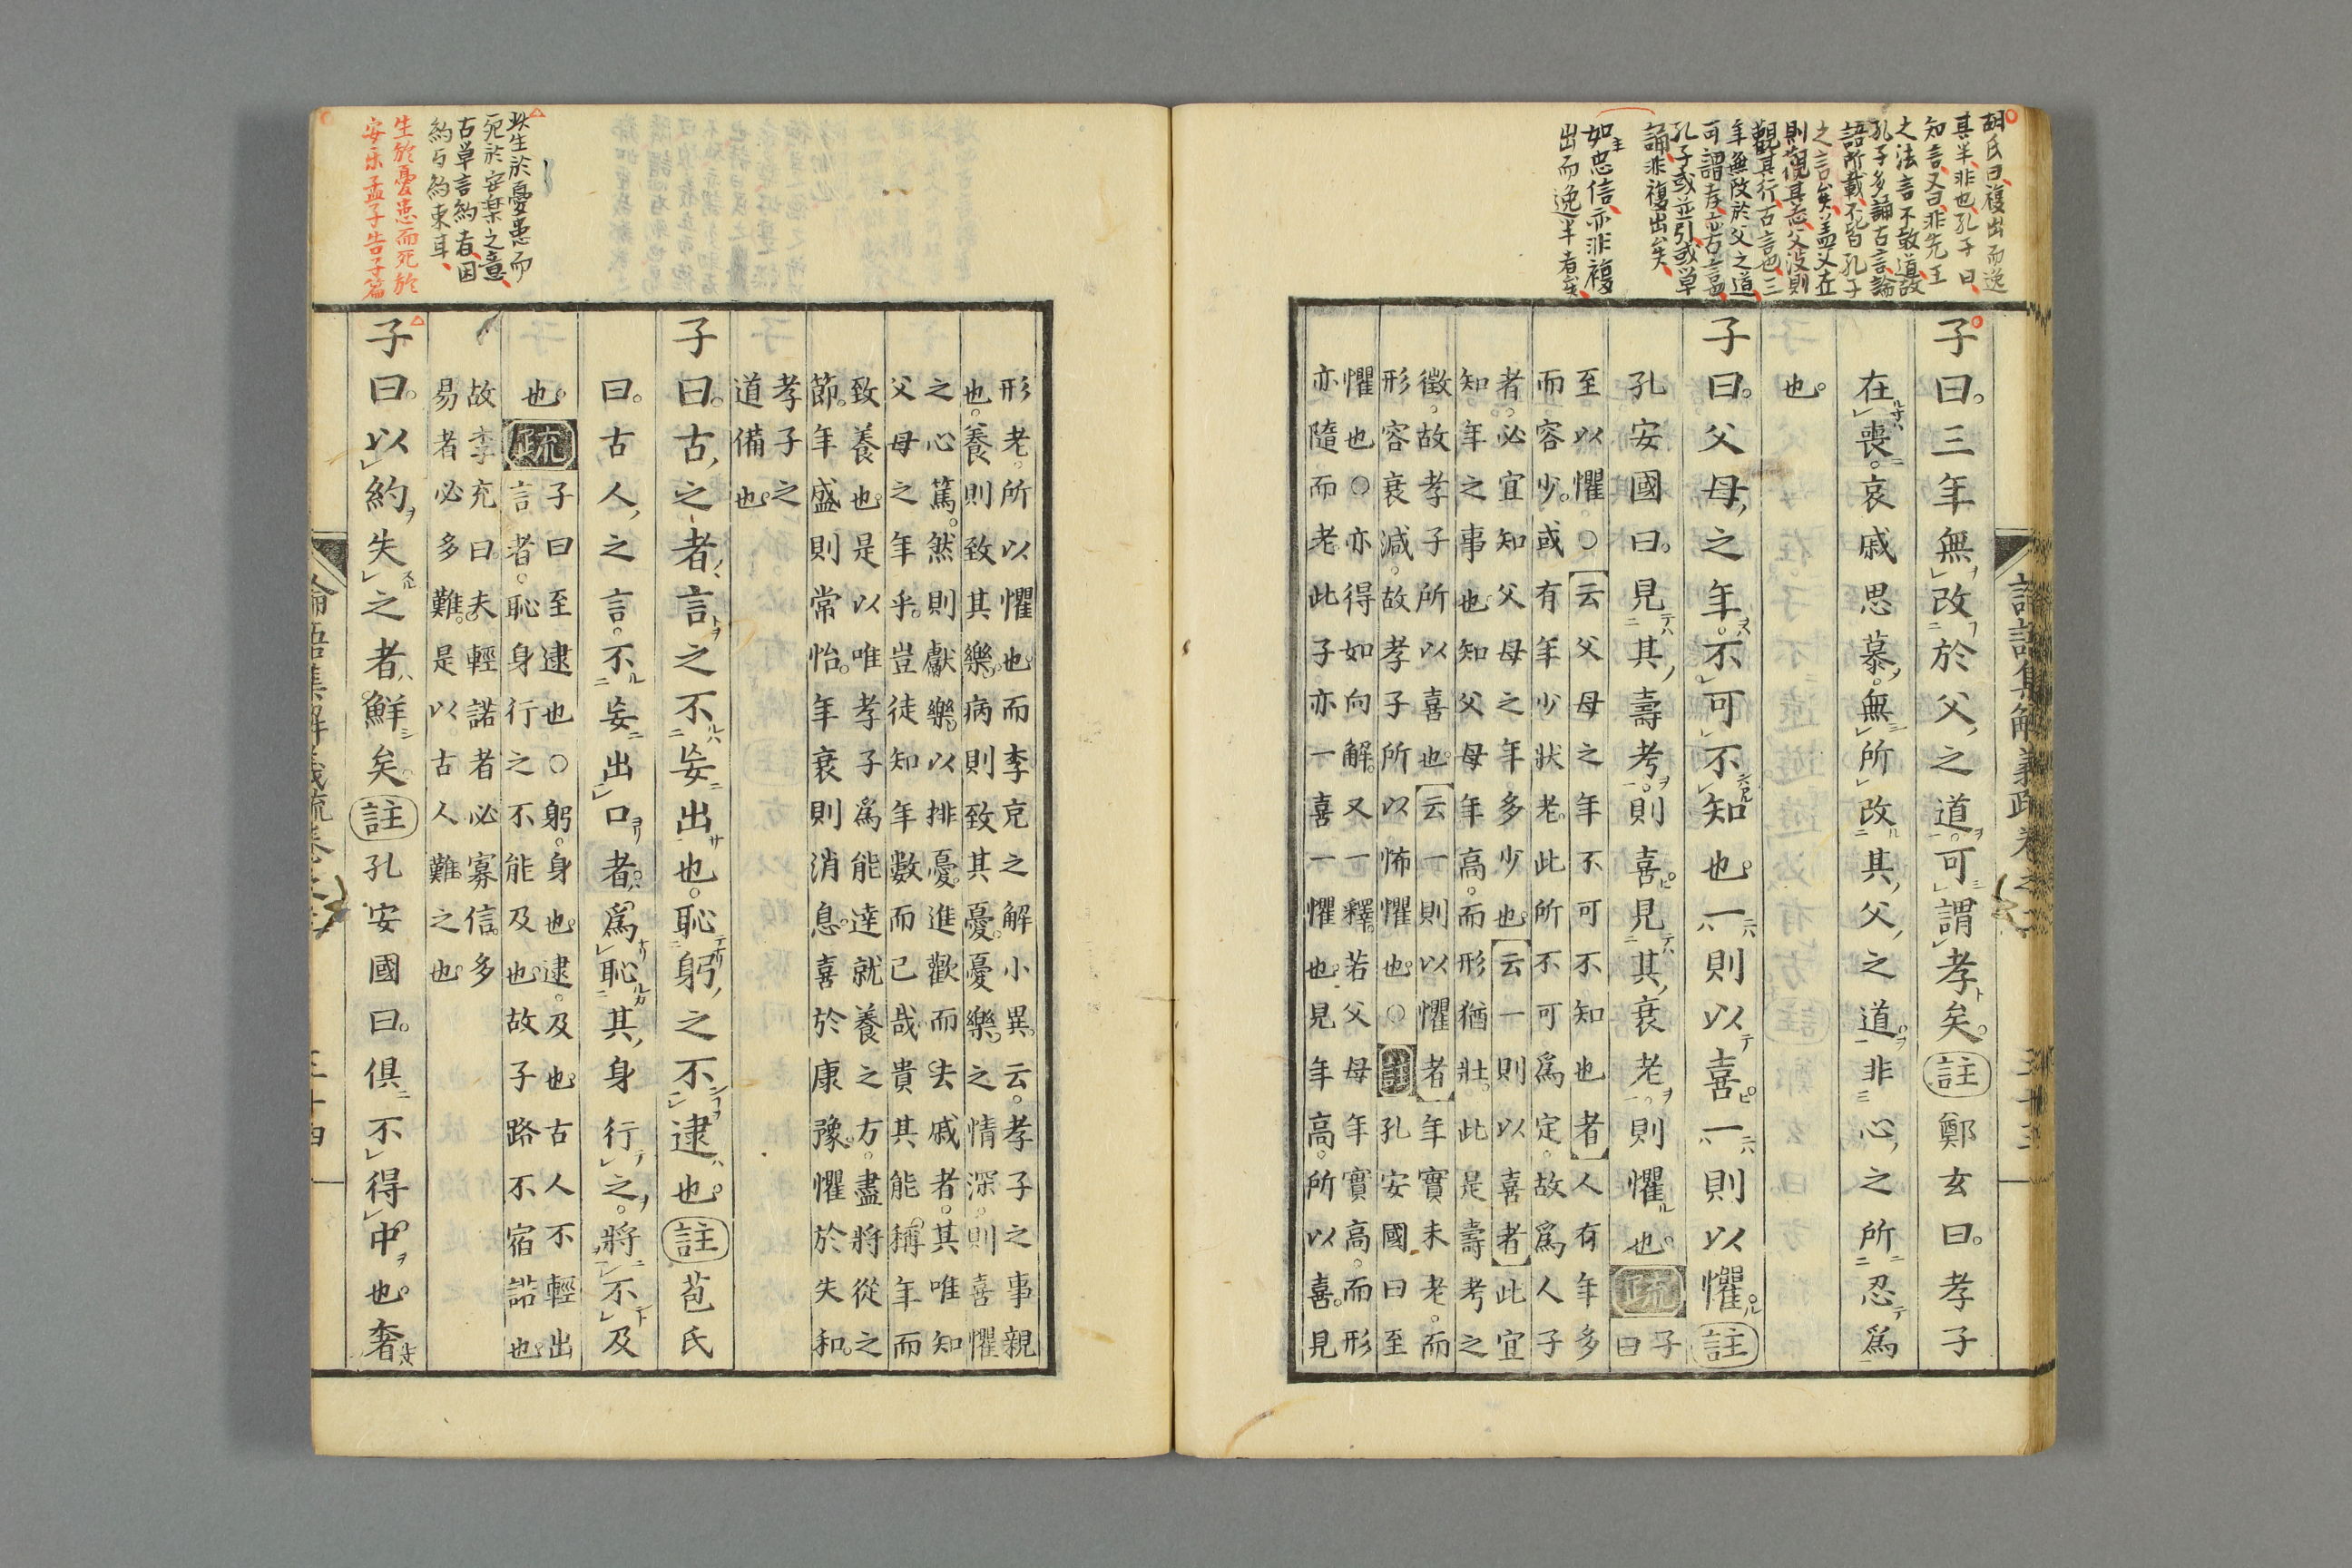 胡氏曰複出而逸
其半非也孔子曰
知言又曰非先王
之法言不敢道故
孔子多誦古言論
語所載不皆孔子
之言矣蓋父在
則觀其志父沒則
觀其行古言也三
年無改於父之道
可謂孝亦古言蓋
孔子或並引或單
誦非複出矣
如主忠信亦非複
出而逸半者矣
子曰。三年無改於父之道。可謂孝矣。註鄭玄曰。孝子
在喪。哀戚思慕。無所改其父之道。非心之所忍爲
也。
子曰。父母之年。不可不知也。一則以喜。一則以懼。註
孔安國曰。見其壽考。則喜見其衰老。則懼也。疏子
曰
至以懼○云父母之年不可不知也者人有年多
而容少。或有年少狀老。此所不可爲定。故爲人子
者。必宜知父母之年多少也。云一則以喜者此宜
知年之事也。知父母年高。而形猶壯。此是壽考之
徵。故孝子所以喜也。云一則以懼者年實未老。而
形容衰減。故孝子所以怖懼也。○註孔安國曰至
懼也○亦得如向解。又一釋。若父母年實高。而形
亦隨而老。此子亦一喜一懼也。見年高。所以喜。見
形老。所以懼也而李充之解小異。云。孝子之事親
也。養則致其樂。病則致其憂。憂樂之情深。則喜懼
之心篤。然則獻樂以排憂。進歡而去戚者。其唯知
父母之年乎。豈徒知年數而已哉。貴其能稱年而
致養也。是以唯孝子爲能達就養之方。盡將從之
節。年盛則常怡。年衰則消息。喜於康豫。懼於失和。
孝子之
道備也。
子曰。古之者言之不妄出也。恥躬之不逮也。註苞氏
曰。古人之言。不妄出口者。爲恥其身行之。將不及
也。疏子曰至逮也○躬。身也。逮。及也。古人不輕出
言者。恥身行之不能及也。故子路不宿諾也。
故李充曰。夫輕諾者必寡信。多
易者必多難。是以古人難之也。
子曰。以約失之者鮮矣。註孔安國曰。俱不得中也。奢
此生於憂患而
死於安樂之意
古單言約者困
約与約束耳
生於憂患而死於
安樂孟子告子篇